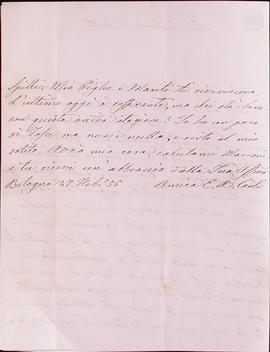 spilli. Mio Figlio e Marito ti riveriscono.
L'ultimo oggi è sofferente, ma chi stà bene
con questa orrida stagione? Io ho un poco
di Tosse ma non è nulla, e sorto al mio
solito. Addio mia cara, salutami
e tu ricevi un abbraccio dalla Tua Aff.ma
Bologna 27 Feb.° 55 Amica E.